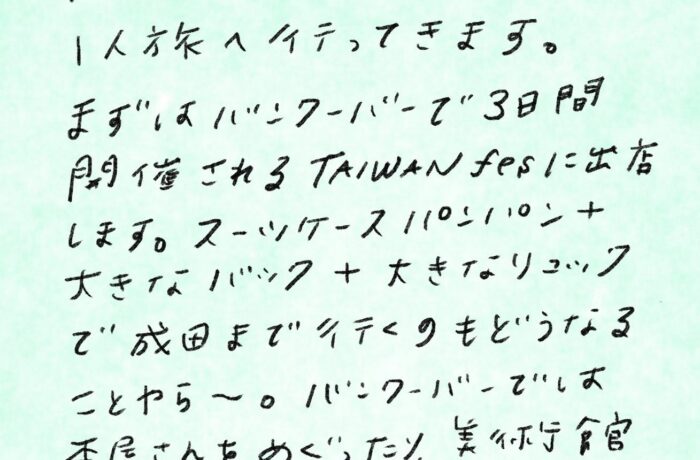 1人旅へ行ってきます。
まずはバンクーバーで3日間
開催されるTAIWAN fesに出店
します。スーツケースパンパン+
大きなバック+大きなリュック
で成田まで行くのもどうなる
ことやら〜。バンクーバーでは
本屋さんをめぐったり、美術館